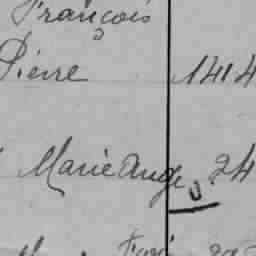 François
Pierre 1414
Marie Ange 24